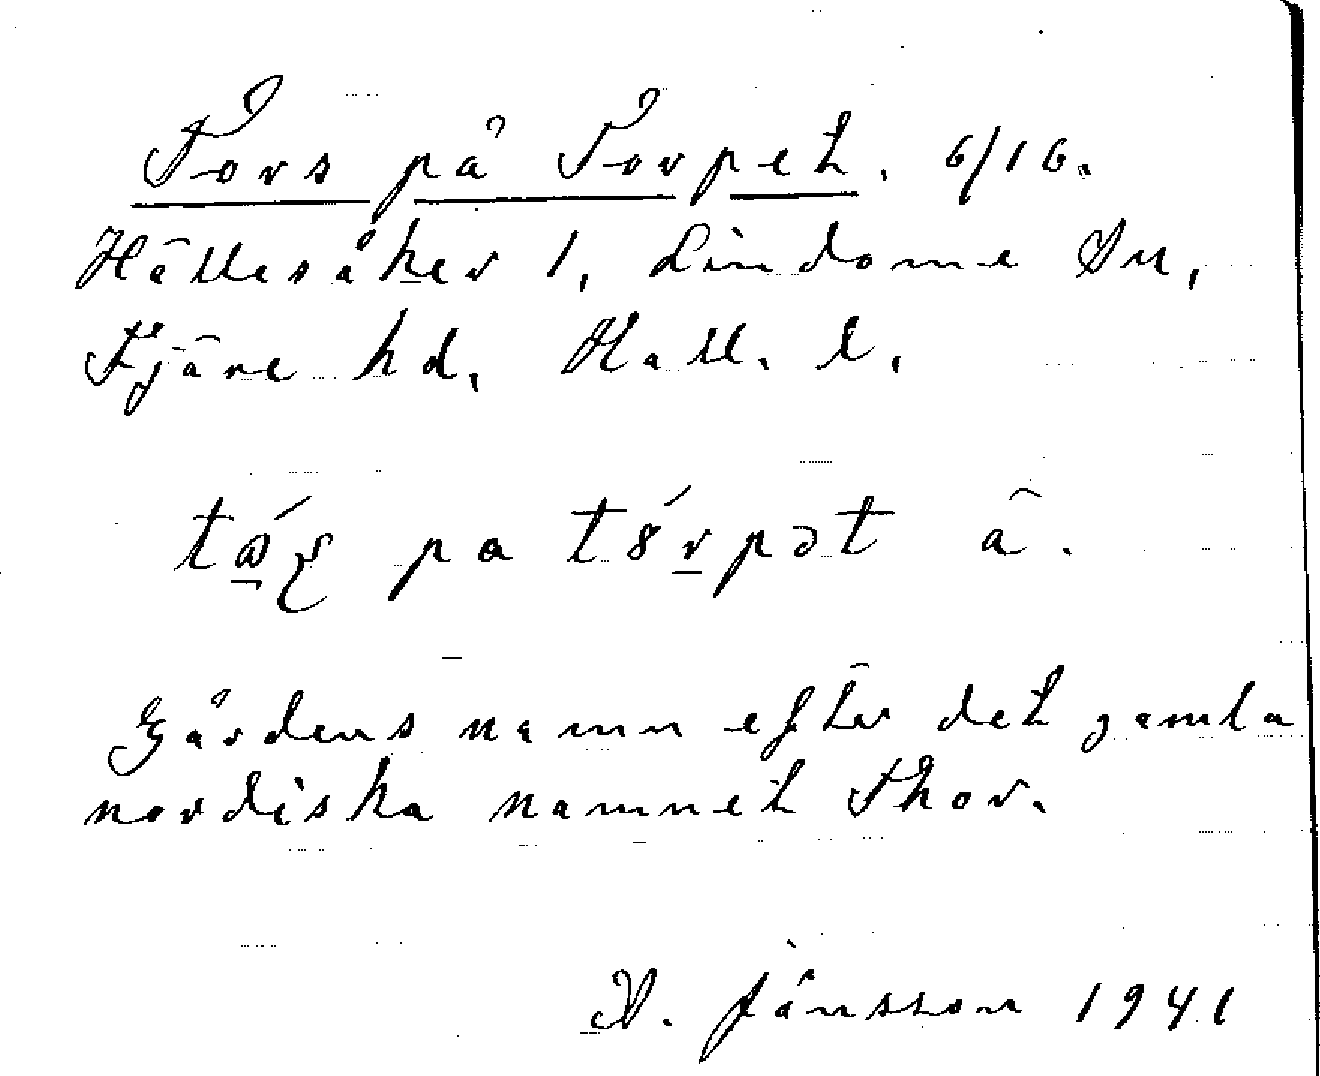 Tors på Torpet. 6/16.
Hällesåker 1, Lindome Sn,
Fjäre hd, Hall. l,
pa
Gårdens namn efter det gamla
nordiska namnet Thor.
Jånsson 1941